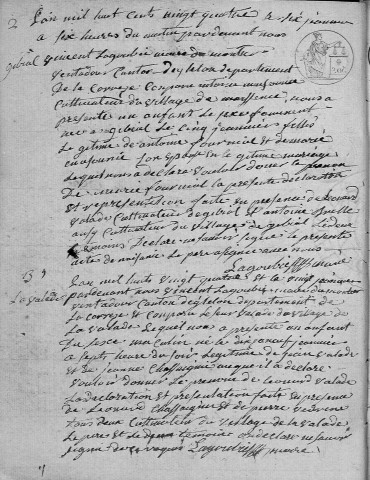 2 L'an mil huit cents vingt quatre le six janvier
a six heures du matin pardevant nous
gibial vincent Lagoubie maire de moutier
ventadour Canton degleton departement
De la Correze
Cultivateur du village de nous a
presenté un anfant de sexe feminent
née a gibial le cinq jeanvier fille
Legitime de antoine fourneil et de marie
en legitime mariage
Lequel nous a declare vouloir donner le prenon
De marie fourneil la presente declaration
et representation faite en presence de Leonard
valade Cultivateur de gibial et antoine
aussy Cultivateur du village de gibial Les deux
temoins Declare ne savoir signé le presente
actes de naisance Le pere a signé avec nous
Lagoubie maire
3 L'an mil huit vingt quatre et le vingt janvier
La valade pardevant nous vincent Lagoubie maire de moutier
ventadour Canton degleton departement de
La correze et Comparu le sieur valade du village de
La valade Lequel nous a presenté un anfant
du sexe masculin né le dix janvier
a sept heures du soir Legitime de jean valade
et de jeanne Chassaigne auquel il a declaré
vouloir donner Le prenome de Leonard valade
La declaration et presentation faite en presence
de Leonard Chassaigne et de pierre vedrene
tous deux Cultivateur du village de la valade
Le pere et Le deux temoins on declare ne savoir
signé de ce requis Lagoubie maire